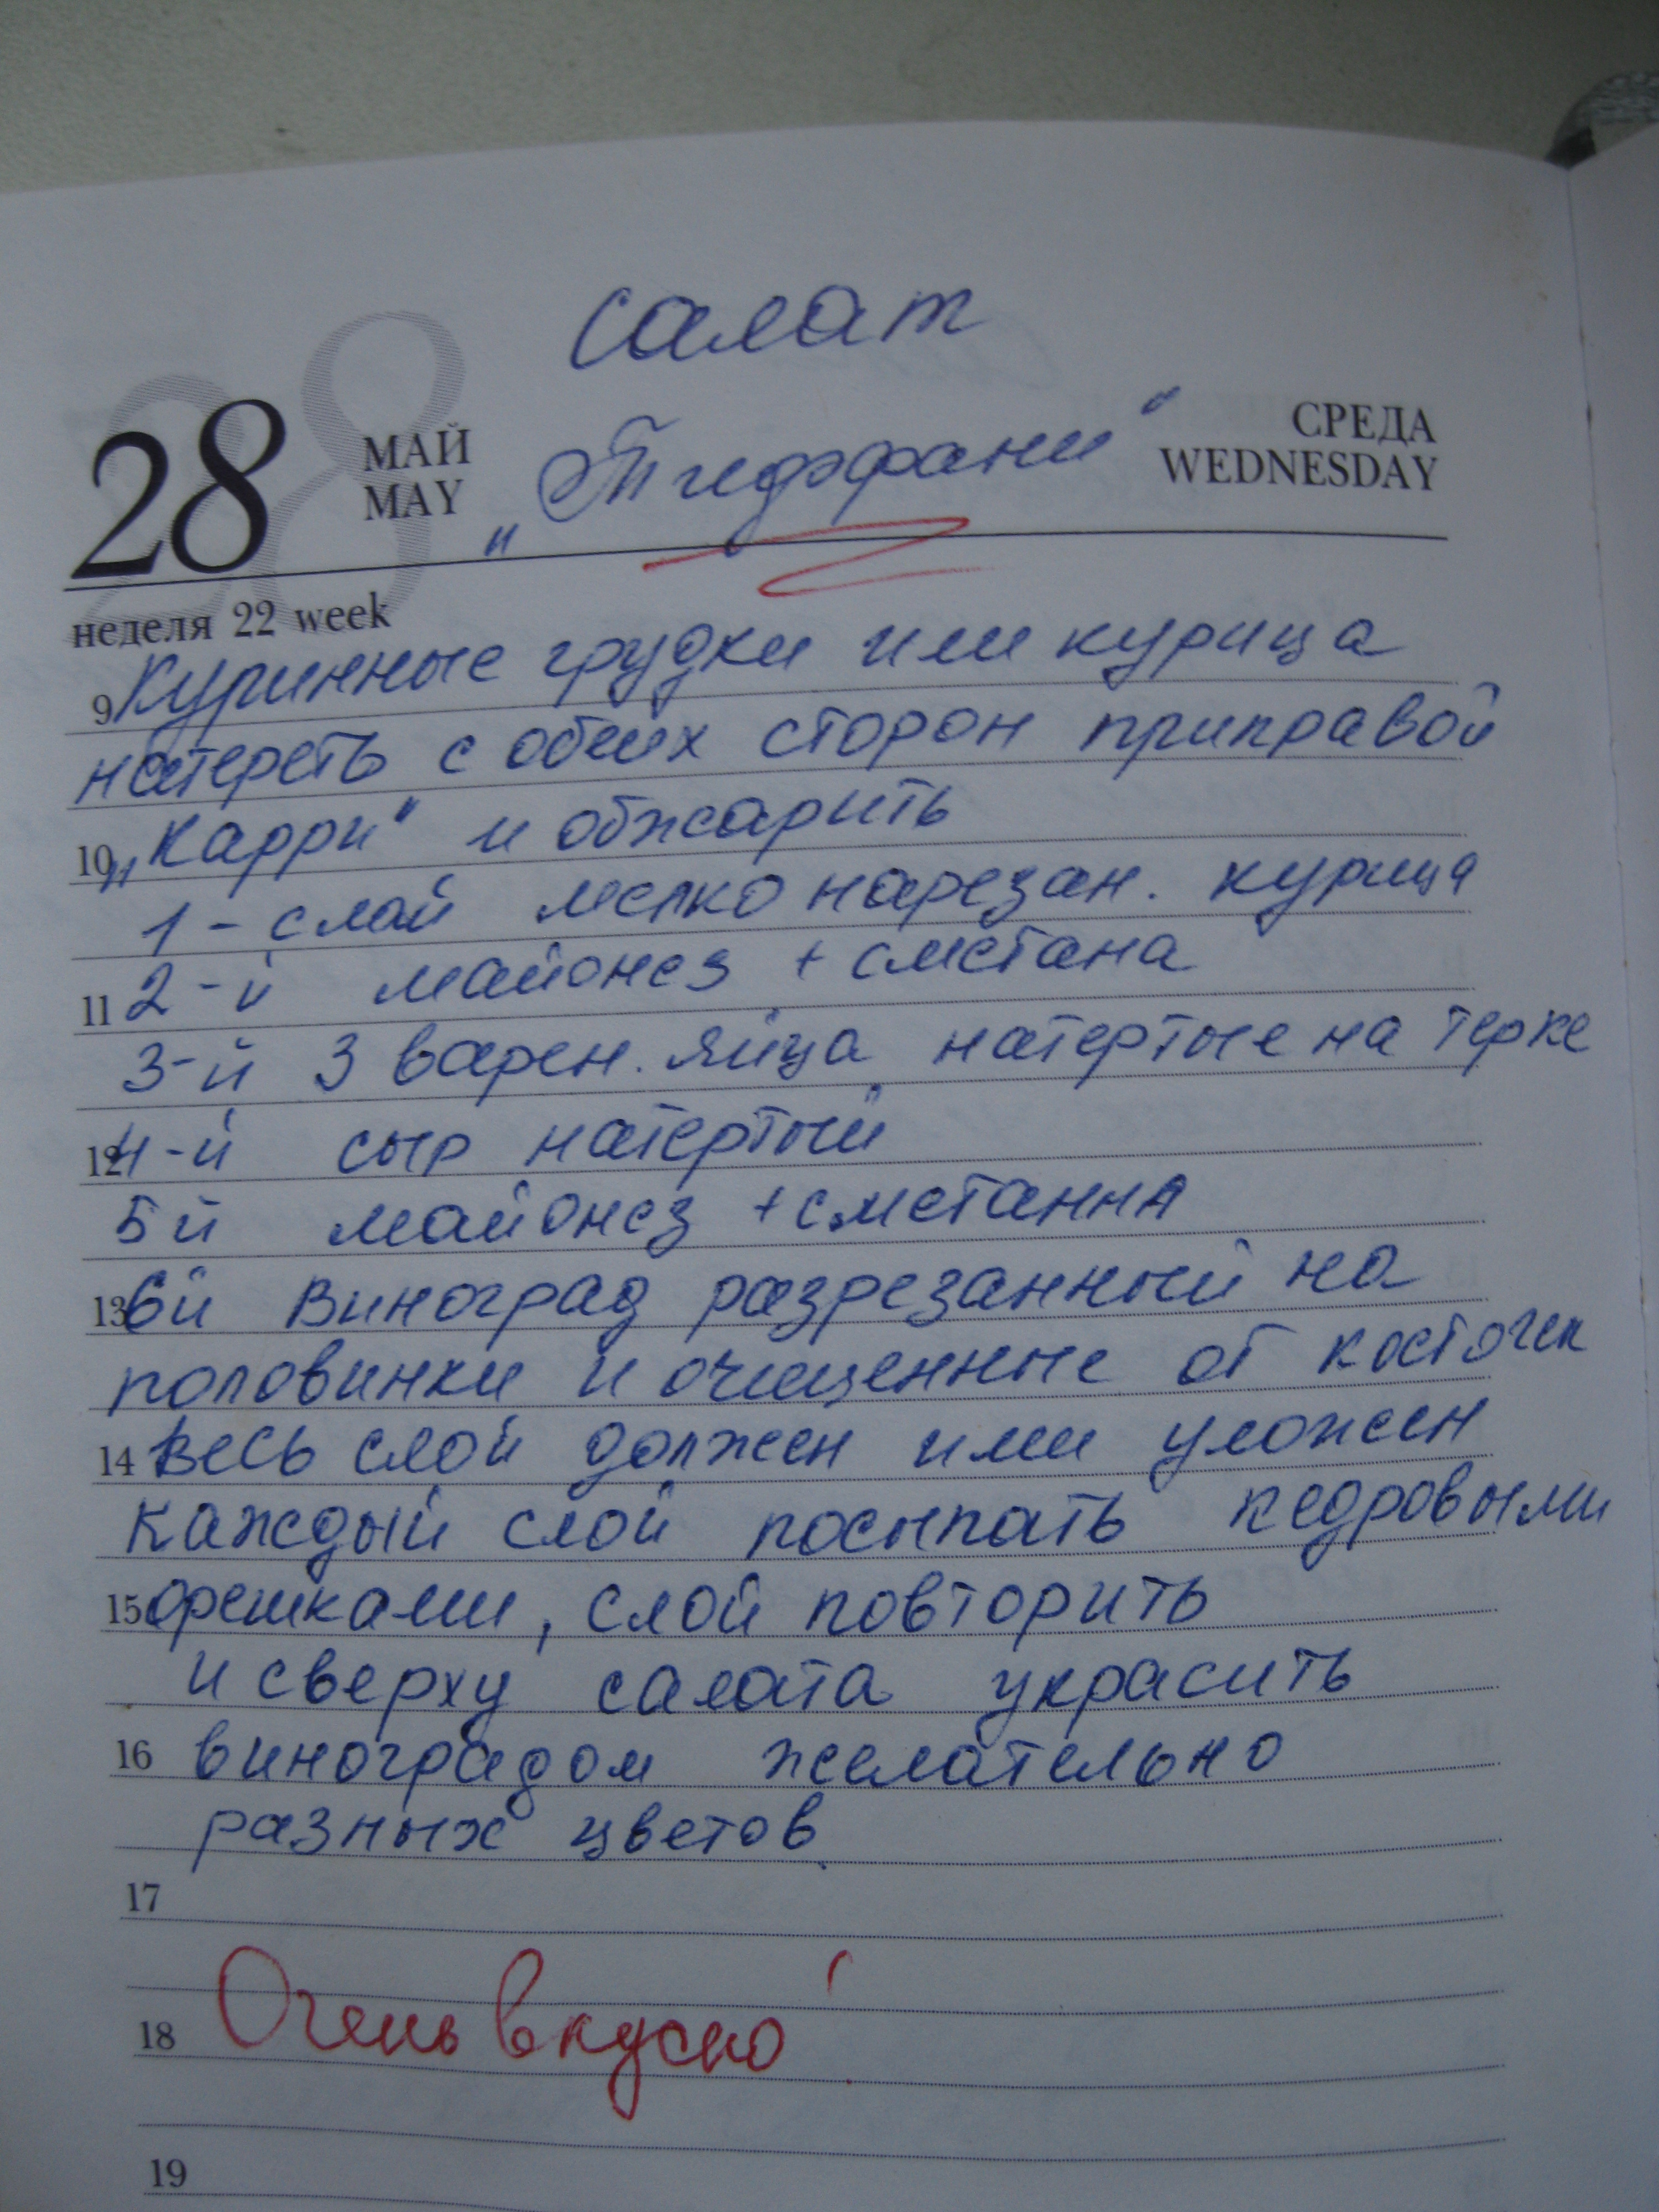 салат
28 МАЙ MAY „Тиффани“ СРЕДА WEDNESDAY
неделя 22 week
9 Куринные грудки или курица
натереть с обеих сторон приправой
10 „Карри“ и обжарить
1 - слой мелко нарезан. курица
11 2-й майонез + сметана
3-й 3 варен. яйца натертые на терке
12 4-й сыр натертый
5й майонез + сметанна
13 6й Виноград разрезанный на
половинки и очищенные от косточек
14 весь слой должен ими уложен
каждый слой посыпать кедровыми
15 орешками, слой повторить
и сверху салата украсить
16 виноградом желательно
разных цветов.
17
18 Очень вкусно!
19